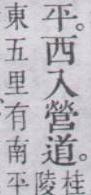 平。西入營道。桂
陵
東五里有南平